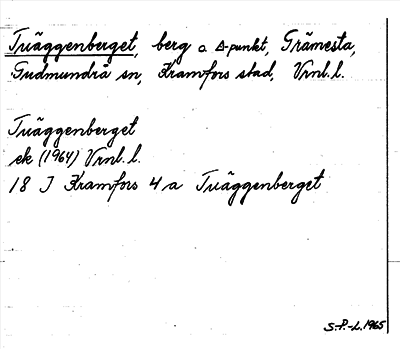 Tväggenberget, berg o Δ-punkt, Grämesta,
Gudmundrå sn, Kramfors stad, Vrnl. l.
Tväggenberget
ek (1964) Vrnl. l.
18 I Kramfors 4 a Tväggenberget
S.-P.-L. 1965